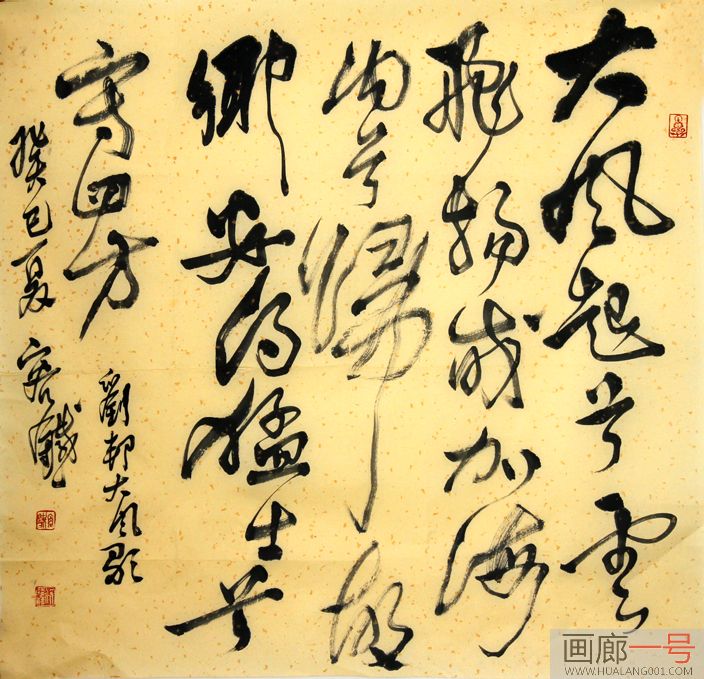 大風起兮雲
飛揚威加海
内兮歸故
鄉安得猛士兮
守四方
劉邦大風歌
癸巳夏
画廊一号
WWW.HUALANG001.COM